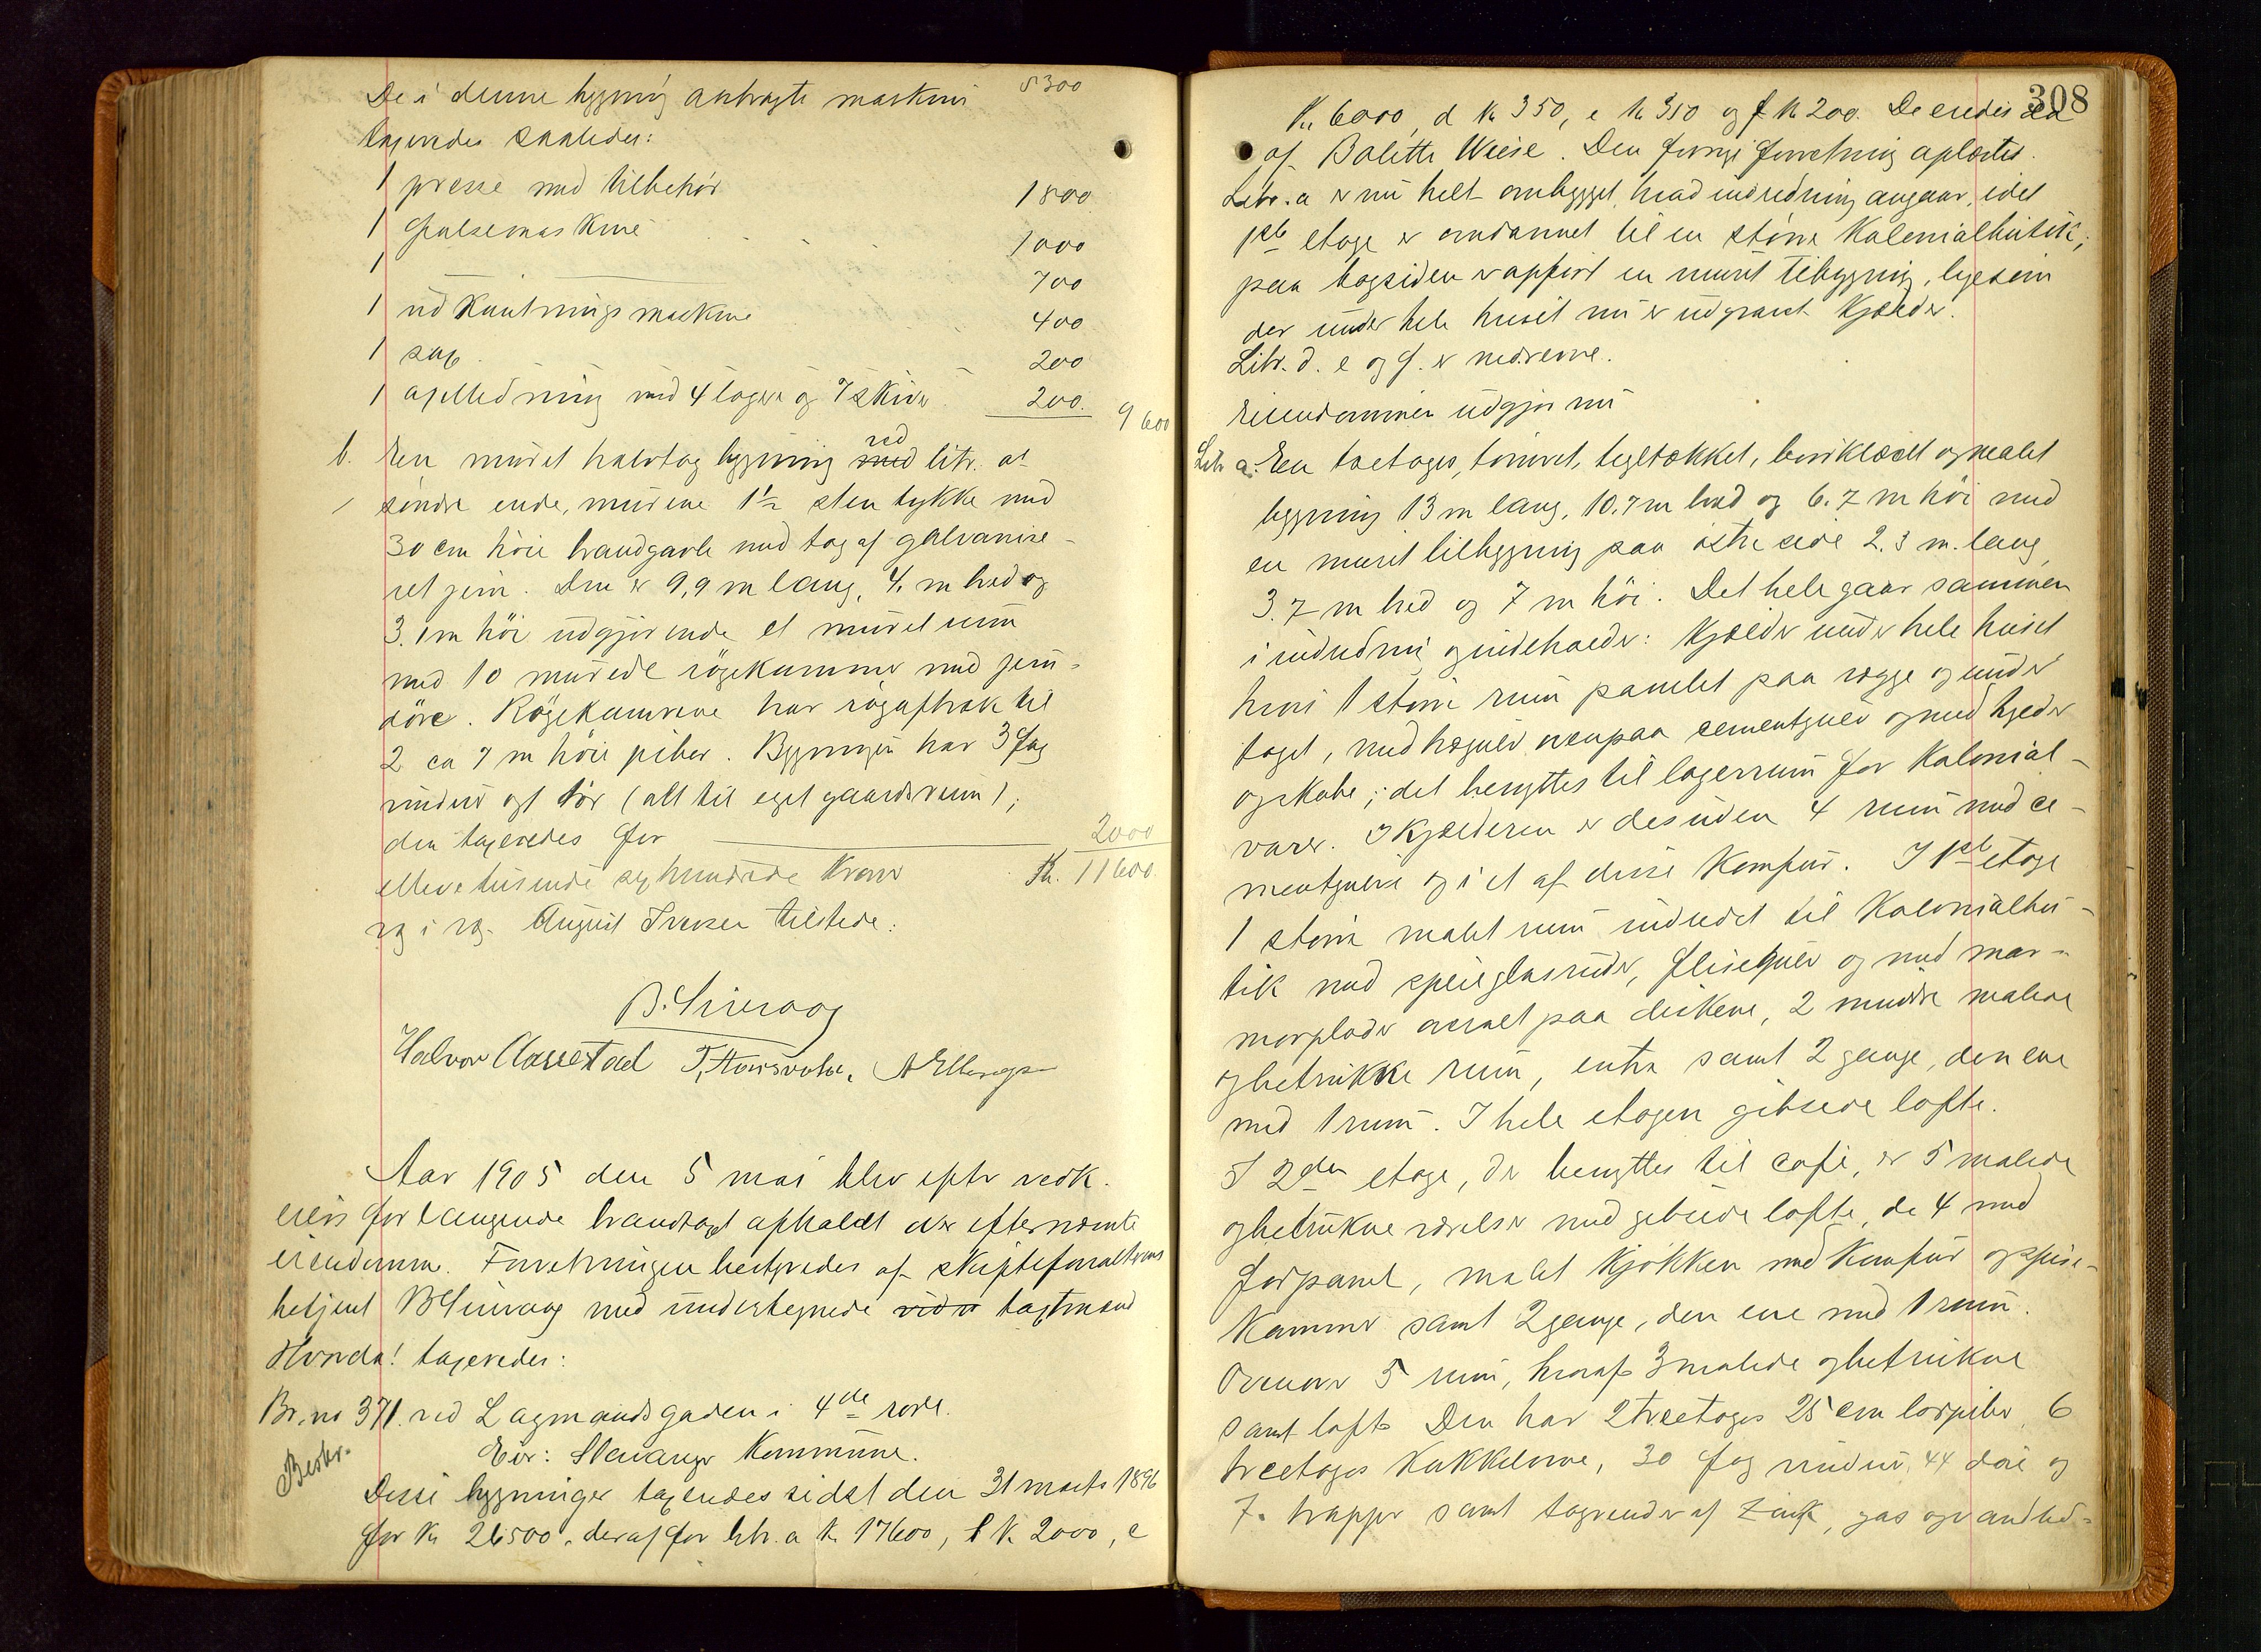 De i denne bygning anbragte maskiner 5300
taxeredes saaledes:
1 presse med tilbehør 1800
1 falsemaskine 1000
1 — 700
1 udkantningsmaskine 400
1 sax 200
1 axelledning med 4 lagere og 7 skiver 200. 9600
b. En muret halvtag bygning med ved litr. a's
søndre ende, murene 1½ sten tykke med
30 cm høie brandgavle med tag af galvanise-
ret jern. Den er 9,9 m lang, 4. m bred og
3.1 m høi udgjørende et muret rum
med 10 murede røgekammer med jern-
døre. Røgekamrene har røgaftræk til
2 ca 7 m høie piber. Bygningen har 3 fag
vinduer og 1 dør (alt til eget gaardsrum);
den taxeredes for 2000
elleve tusinde sexhundrede kroner Kr. 11600
August Iversen tilstede.
B. Sirevaag
Halvor Aarrestad T. Hausvold. A Ellingsen
Aar 1905 den 5 mai blev efter vedk.
eiers forlangende brandtaxt afholdt over efternævnte
eiendomme. Forretningen bestyredes af skifteforvalterens
betjent B Sirevaag med undertegnede vidn taxtmænd
Hvorda! taxeredes:
Br. no 371. ved Lagmandsgaden i 4de rode.
Eier: Stavanger Kommune.
Beskr.
Disse bygninger taxeredes sidst den 31 marts 1896
for Kr 26500. deraf for litr. a Kr 17600, b Kr. 2000, c
308
Kr 6000, d Kr 350, e Kr 350 og f Kr 200. De eiedes da
af Bolette Wiese. Den forrige forretning oplæstes.
Litr. a er nu helt ombygget, hvad indredning angaar, idet
1ste etage er omdannet til en større Kolonialbutik;
paa bagsiden er opført en muret tilbygning, ligesom
der under hele huset nu er udgravet Kjælder.
Litr. d. e og f. er nedrevne.
Eiendommen udgjør nu
Litr a. En toetages, tømret, tegltækket, bordklædt og malet
bygning 13 m lang, 10.7 m bred og 6.7 m høi med
en muret tilbygning paa østre side 2.3 m. lang,
3.7 m bred og 7 m høi. Det hele gaar sammen
i indredning og indeholder: Kjælder under hele huset
hvori 1 større rum panelet paa vægge og under
taget, med trægulv ovenpaa cementgulv og med hylder
og skabe; det benyttes til lagerrum for Kolonial-
varer. I Kjælderen er desuden 4 rum med ce-
mentgulve og i et af disse Komfur. I 1ste etage
1 større malet rum indredet til Kolonialbu-
tik med speilglasruder, flisegulv og med mar-
morplader overalt paa diskene, 2 mindre malede
og betrukne rum, entre samt 2 gange, den ene
med 1 rum. I hele etagen gibsede lofte.
I 2den etage, der benyttes til café, er 5 malede
og betrukne værelser med gibsede lofte, de 4 med
forpanel, malet Kjøkken med Komfur og spise-
kammer samt 2 gange, den ene med 1 rum.
Ovenover 5 rum, hvoraf 3 malede og betrukne
samt loft. Den har 2 treetages 25 cm lørpiber, 6
treetages Kakkelovne, 30 fag vinduer, 44 døre og
7. trapper samt tagrender af zink, gas og vandled-